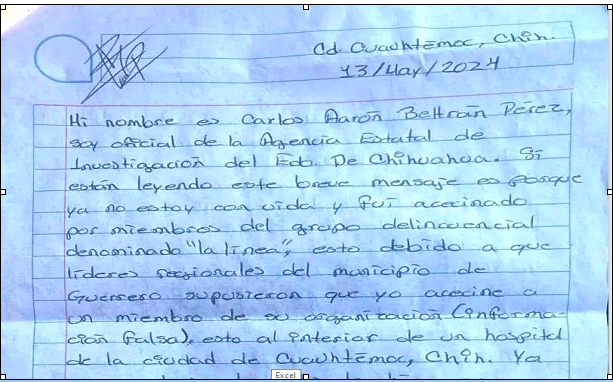 Cd. Cuauhtēmoc, Chih.
13/May/2024
Mi nombre es Carlos Aarón Beltrán Pérez,
soy oficial de la Agencia Estatal de
Investigación del Edo. De Chihuahua. Si
están leyendo este breve mensaje es porque
ya no estoy con vida y fui acecinado
por miembros del grupo delincuencial
denominado "la linea", esto debido a que
líderes regionales del municipio de
Guerrero supusieron que yo acecine a
un miembro de su organización (informa-
ción falsa), esto al interior de un hospital
de la ciudad de Cuauhtémoc, Chih. Ya
Excel